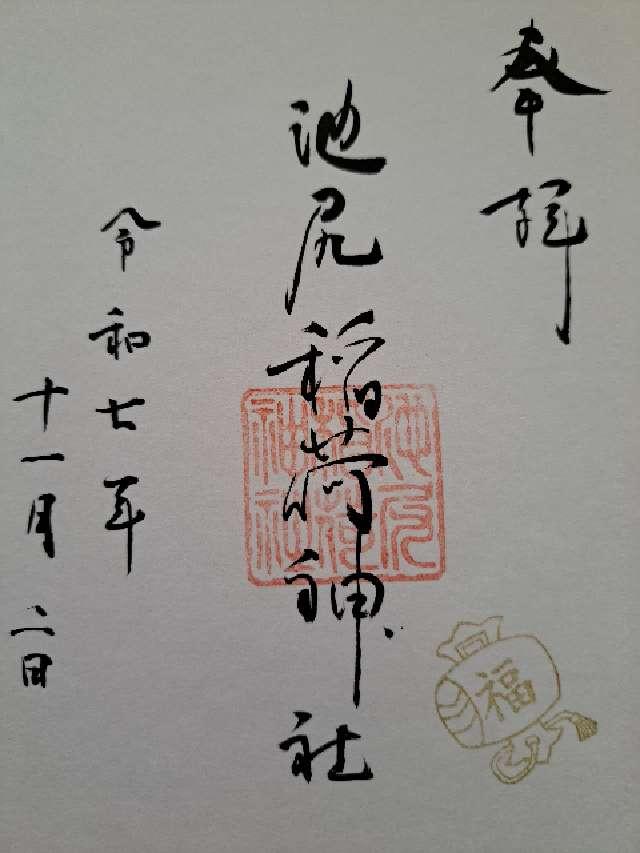 奉拝
池尻稲荷神社
池尻稲荷神社
令和七年
十一月二日
福